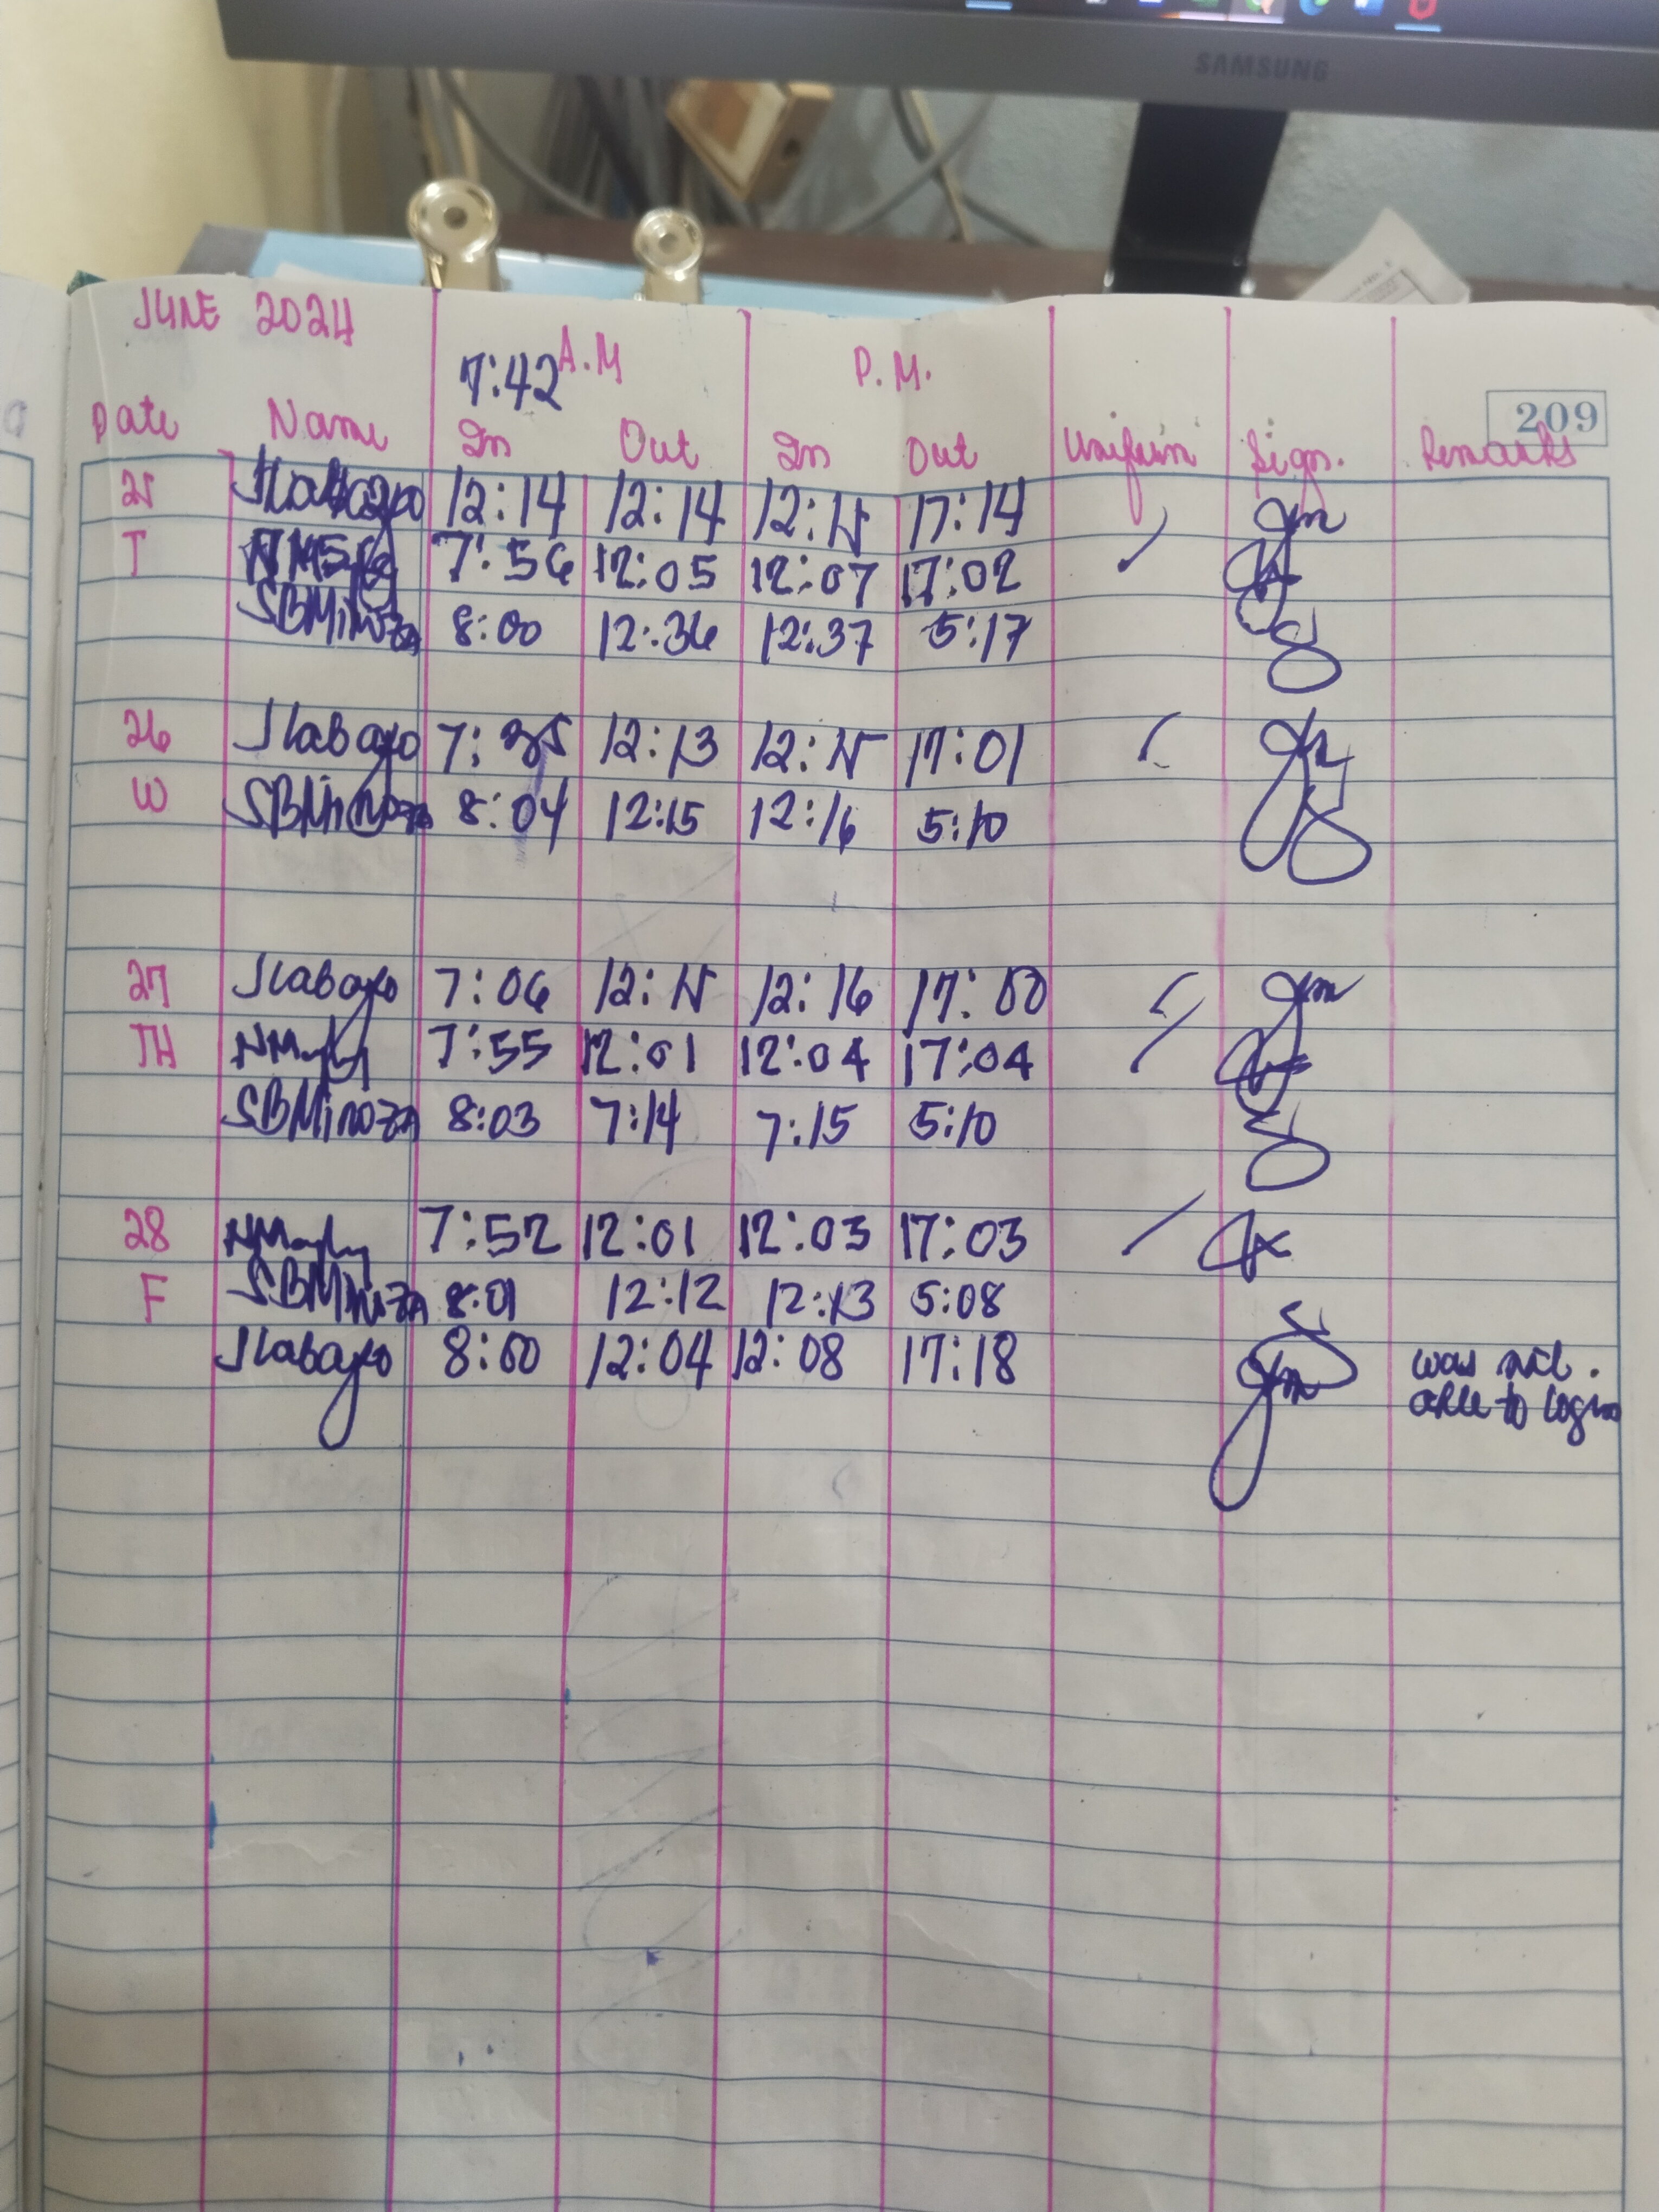 SAMSUNG
JUNE 2024
7:42 A.M P.M.
209
Date Name In Out In Out Uniform Sign. Remarks
25 JLabayo 12:14 12:14 12:15 17:14
T 7:56 12:05 12:07 17:02
SBMinoza 8:00 12:36 12:37 5:17
26 JLabayo 7:35 12:13 12:15 17:01
W SBMinoza 8:04 12:15 12:16 5:10
27 JLabayo 7:06 12:15 12:16 17:00
TH 7:55 12:01 12:04 17:04
SBMinoza 8:03 7:14 7:15 5:10
28 7:52 12:01 12:03 17:03
F SBMinoza 8:01 12:12 12:13 5:08
JLabayo 8:00 12:04 12:08 17:18 was not
able to login